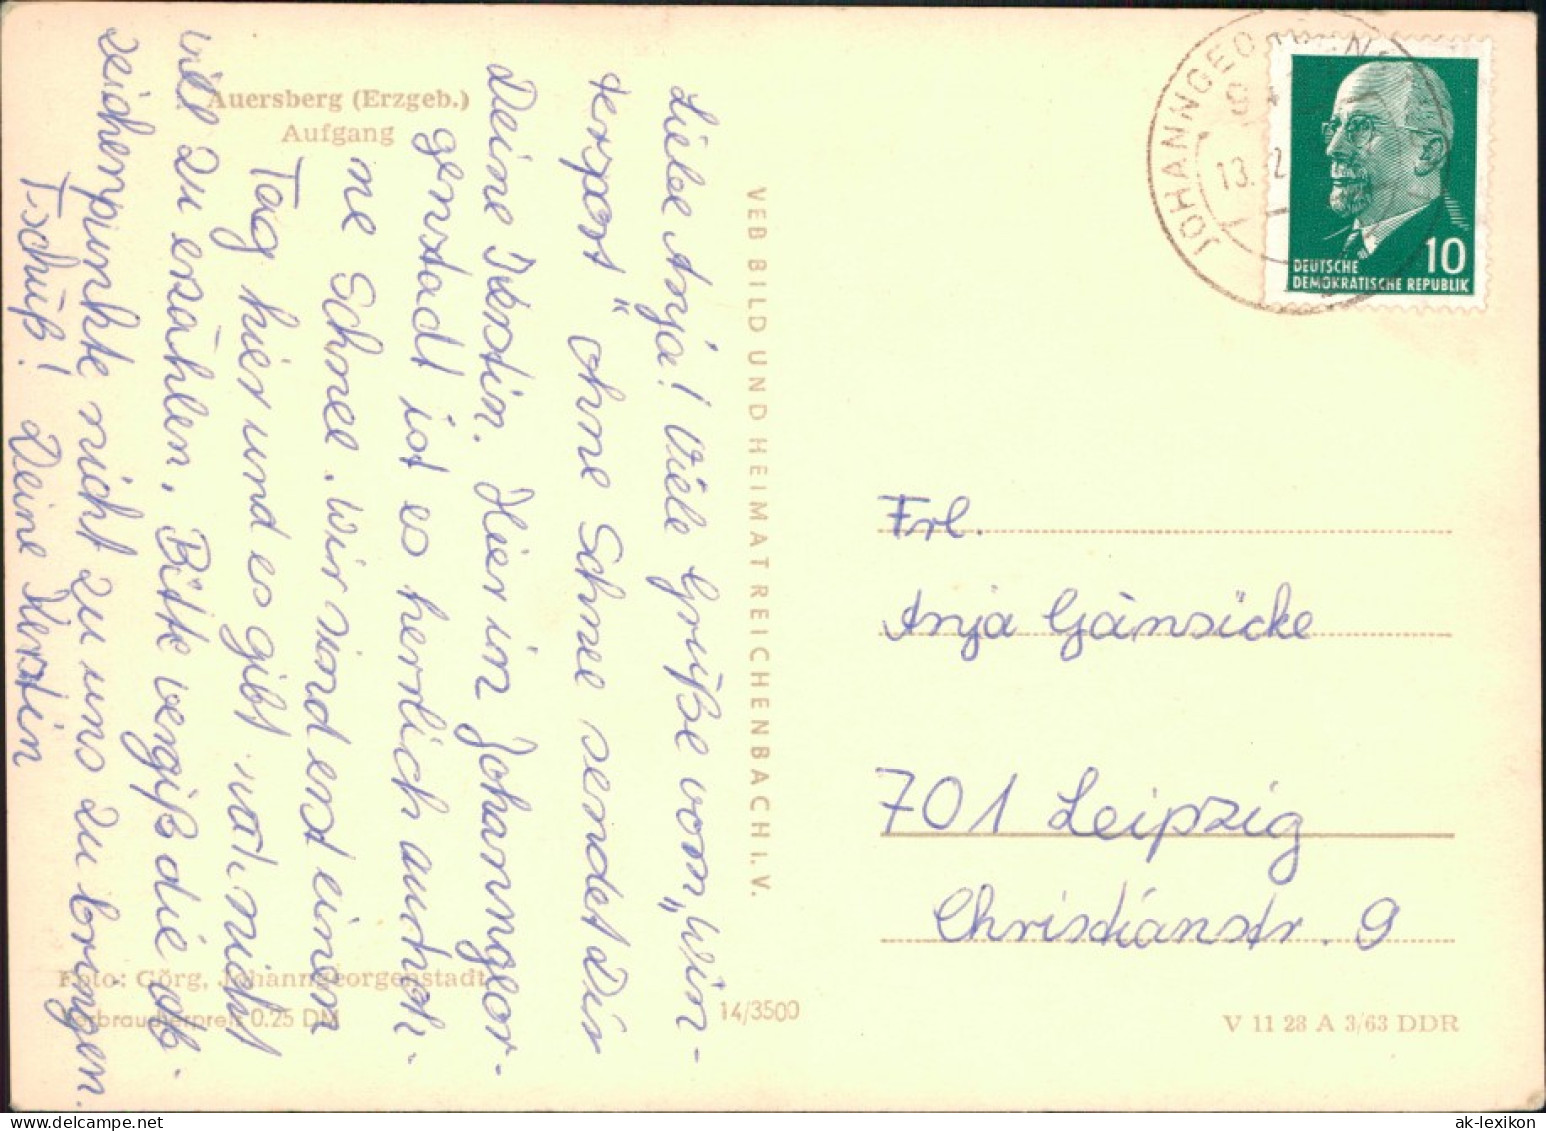 Auersberg (Erzgeb.)
Aufgang
Liebe Anja! Viele Grüße vom „Win-
terpost“ ohne Schnee sendet Dir
Deine Kerstin. Hier in Johanngeor-
genstadt ist es herrlich auch oh-
ne Schnee. Wir sind erst einen
Tag hier und es gibt noch nicht
viel zu erzählen. Bitte vergiß die Ab-
zeichenpunkte nicht zu uns zu bringen.
Tschüß! Deine Kerstin
VEB BILD UND HEIMAT REICHENBACH I.V.
JOHANNGEO
13. 2
10
DEUTSCHE
DEMOKRATISCHE REPUBLIK
Frl.
Anja Gänsicke
701 Leipzig
Christianstr. 9
Foto: Görg, Johanngeorgenstadt
Verbraucherpreis 0.25 DM
14/3500
V 11 28 A 3/63 DDR
ak-lexikon